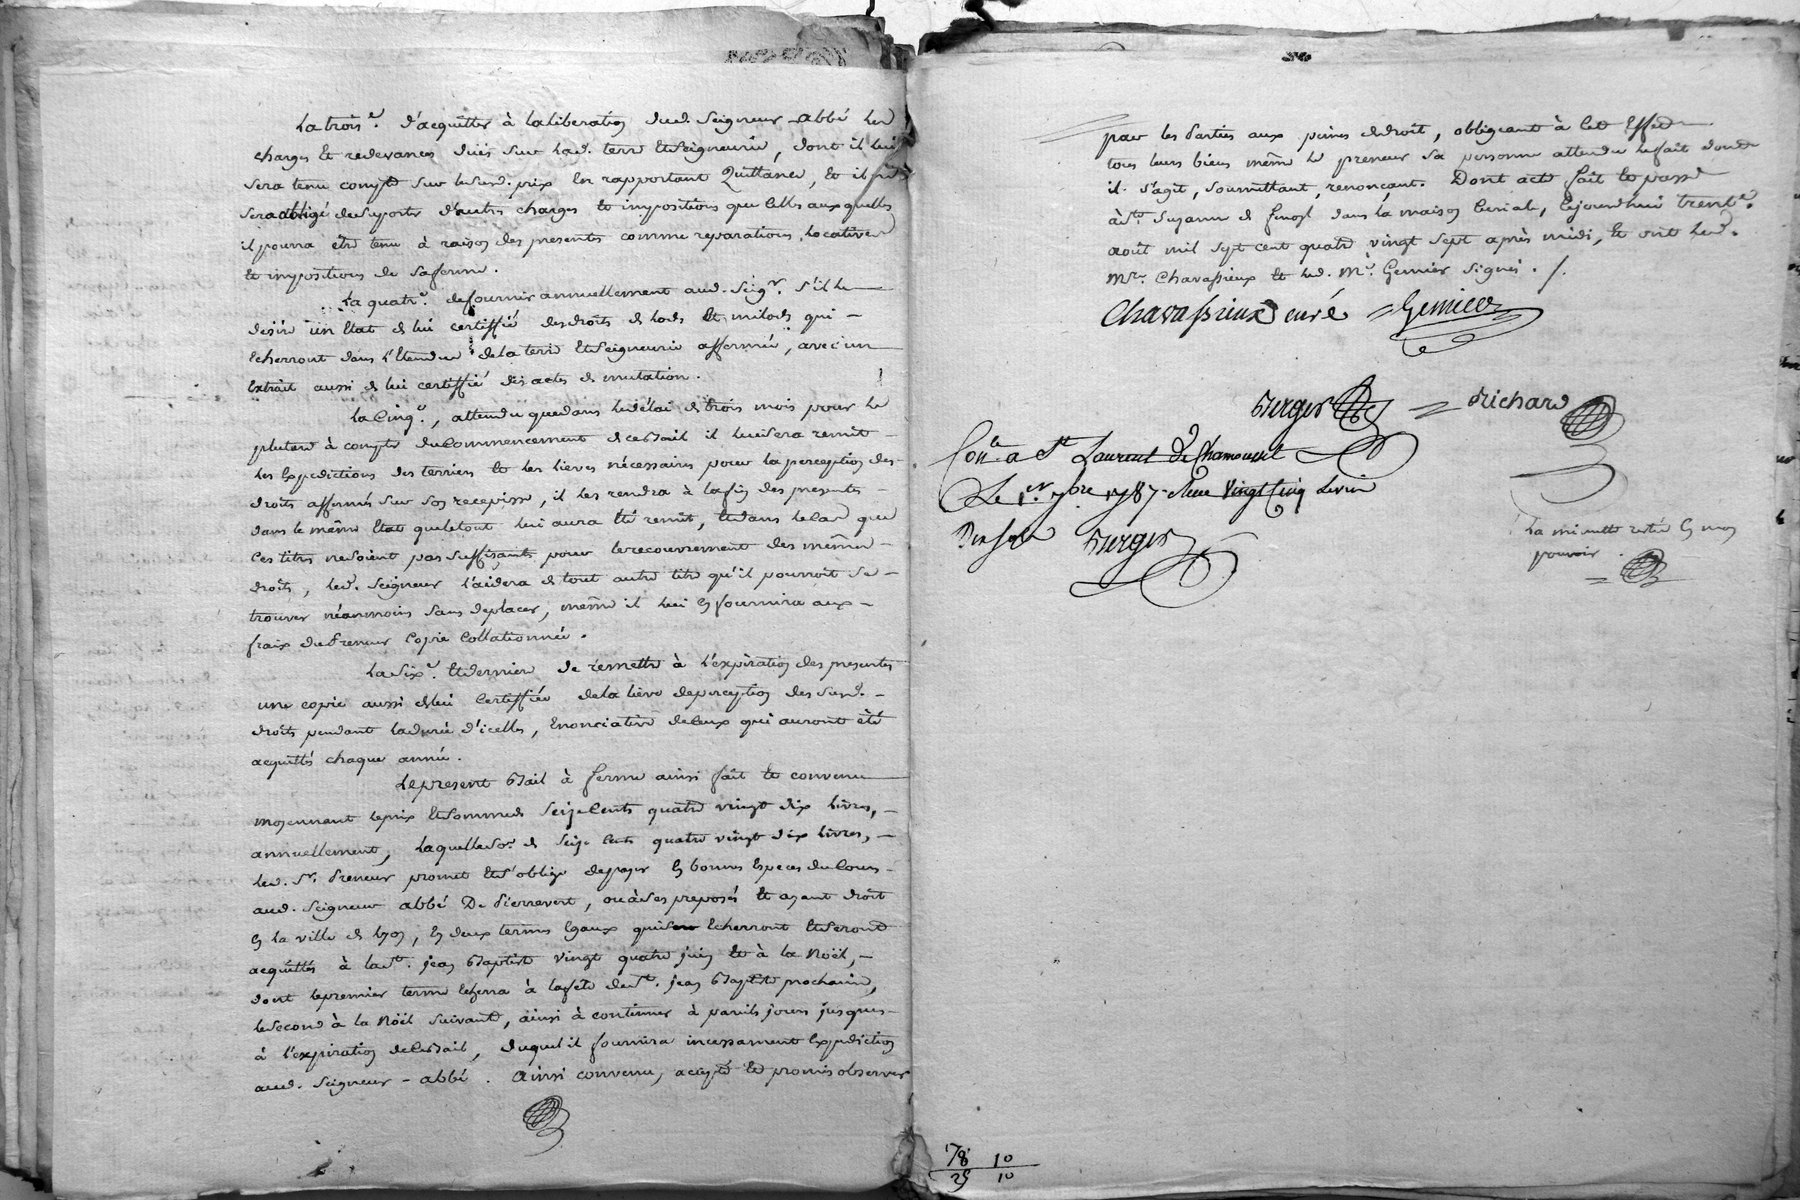 La trois.e d'acquitter à la libération dud. Seigneur abbé les
charges et redevances dües sur lad. terre et Seigneurie, dont il lui
sera tenu compte sur lesusd. prix en rapportant Quittance, et il ne
sera obligé de suporter d'autres charges et impositions que celles auxquelles
il pourra être tenu à raison des presentes comme reparations locatives
et impositions de sa ferme.
La quatr.e de fournir annuellement aud. Seigr. s'il le
desire un Etat de lui certiffié des droits de lods et milods qui
écherront dans l'étendue de la terre et Seigneurie affermée, avec un
Extrait aussi de lui certiffié des actes de mutation.
La Cinq.e, attendu que dans le délai de trois mois pour le
plutard à compter du Commencement de ce Bail il lui sera remit
les Expeditions des terriers et les lieves nécessaires pour la perception des
droits affermés sur son recepisse, il les rendra à la fin des presentes
dans le même Etat que le tout lui aura été remit, et dans le cas que
ces titres ne soient pas suffisants pour le recouvrement des mêmes
droits, led. Seigneur l'aidera de tout autre titre qu'il pourroit se
trouver néanmoins sans deplacer, même il lui en fournira aux
fraix du Preneur Copie Collationnée.
La Six.e et derniere de remettre à l'expiration des presentes
une copie aussi de lui Certiffiée de la lieve de perception des susd.
droits pendant la durée d'icelles, énonciative de ceux qui auront été
acquittés chaque année.
Le present Bail à ferme ainsi fait et convenu
moyennant le prix et somme de Seize Cents quatre vingt dix livres,
annuellement, laquelle so.e de Seize Cents quatre vingt dix livres,
led. Sr. Preneur promet et s'oblige de payer en bonnes Especes du Cours
aud. Seigneur abbé De Pierrevert, ou à ses preposés et ayant droit
en la ville de Lyon, en deux termes Egaux qui echerront et seront
acquittés à la St. jean Baptiste vingt quatre juin et à la Noël,
dont le premier terme echerra à la fête de St. jean Baptiste prochaine,
le second à la Noël suivante, ainsi à continuer à pareils jours jusques
à l'expiration de ce Bail, duquel il fournira incessament Expedition
aud. Seigneur abbé. Ainsi convenu, accepté et promis observer
par les Parties aux peines de droit, obligeant à cet Effet
tous leurs biens même le preneur sa personne attendu le fait dont
il s'agit, soumettant, renonçant. Dont acte fait et passé
à Ste Suzanne de dans la maison Curiale, cejourdhui trente.
août mil sept cent quatre vingt sept après midi, et ont led.
Mre. Chavassieux et led. Mr. Gemier signés ./.
Chavassieux curé = Gemier
Berger = Richard
Con.le a St Laurent De Chamousset
Le 1er. 7bre 1787. Recu Vingt Cinq
Berger
La minutte restée en mon
pouvoir.
78 10
25 10